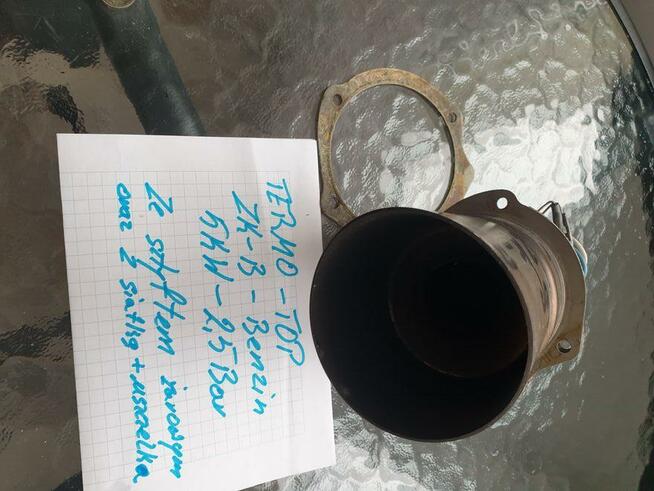 TERMO-TOP
ZK-B-Benzin
5KW-2,5Bar
Ze sztyftem żarowym
oraz z siatką + uszczelka